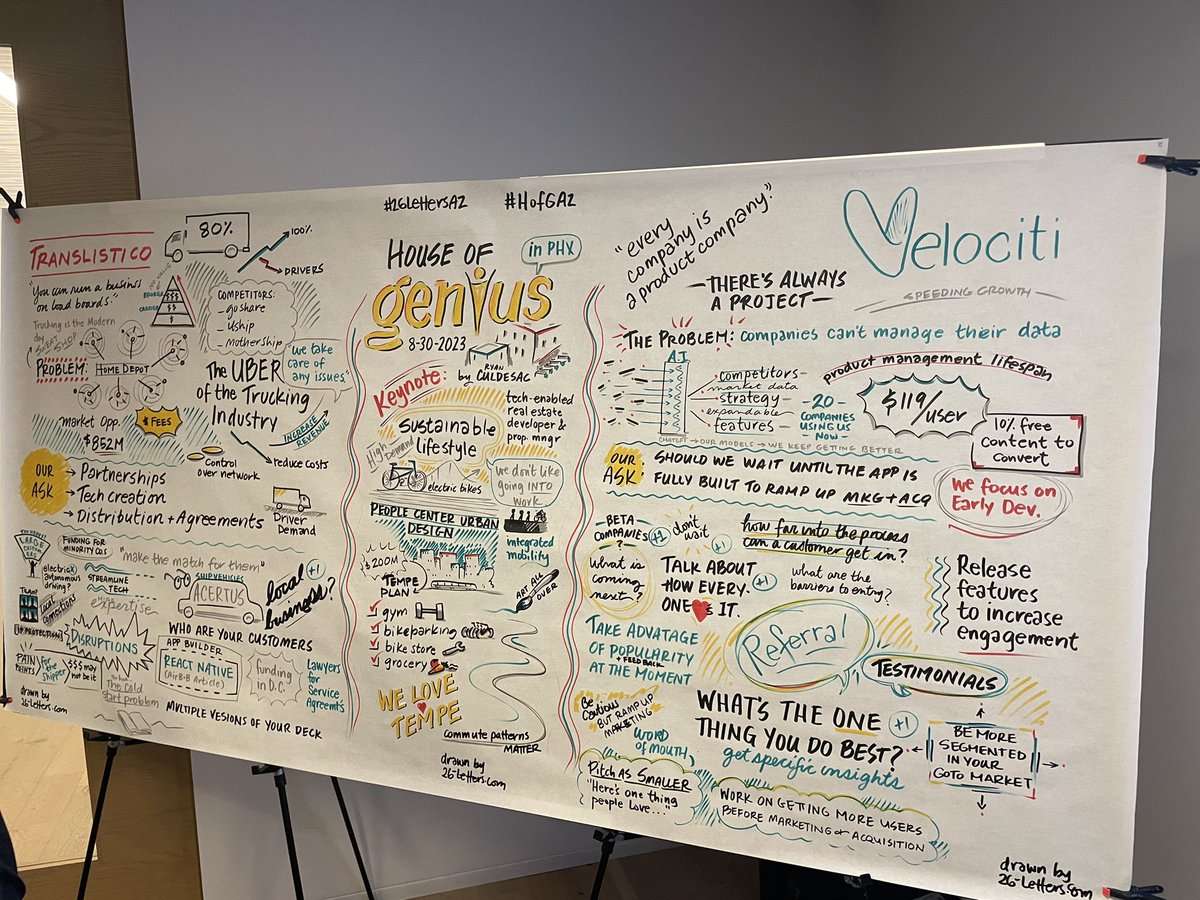 #26LettersAZ #HofGAz
TRANSLISTICO
80%
100%
DRIVERS
"You can run a business
on load boards."
BROKERS
CARRIERS
$$$
$$
$
COMPETITORS:
- goshare
- Uship
- mothership
Trucking is the Modern
day SWEAT SHOP
PROBLEM:
HOME DEPOT
The UBER
of the Trucking
Industry
"we take
care of
any issues."
market Opp.
$852M
$ FEES
INCREASE
REVENUE
reduce costs
Control
over network
OUR
ASK
Partnerships
Tech creation
Distribution + Agreements
Driver
Demand
LARGE
FUNDING FOR
MINORITY COS
"make the match for them"
electric
autonomous
driving?
STREAMLINE
TECH
expertise
SHIP VEHICLES
ACERTUS
local
business?
+1
Team?
local
connections
IP PROTECTION
DISRUPTIONS
WHO ARE YOUR CUSTOMERS
APP BUILDER
REACT NATIVE
(AirB+B Article)
funding
in D.C.
Lawyers
for
Service
Agreemts
PAIN
POINTS
for the
shipper
$$$ may
not be it
The Cold
start problem
MULTIPLE VESIONS OF YOUR DECK
drawn by
26-Letters.com
HOUSE OF
in PHX
genius
8-30-2023
Keynote:
by RYAN
CULDESAC
tech-enabled
real estate
developer &
prop. mngr
Sustainable
lifestyle
High
Demand
electric bikes
we don't like
going INTO
work
PEOPLE CENTER URBAN
DESIGN
integrated
mobility
$200M
TEMPE
PLAN
ART ALL
OVER
gym
bikeparking
bike store
grocery
WE LOVE
TEMPE
commute patterns
MATTER
drawn by
26-Letters.com
"every
company is
a product company."
Velociti
SPEEDING GROWTH
THERE'S ALWAYS
A PROJECT
THE PROBLEM: companies can't manage their data
A.I
competitors
market data
strategy
expandable
features
CHATGPT → OUR MODELS → WE KEEP GETTING BETTER
20
COMPANIES
USING US
NOW
product management lifespan
$119/user
10% free
Content to
convert
OUR
ASK:
SHOULD WE WAIT UNTIL THE APP IS
FULLY BUILT TO RAMP UP MKG + ACQ
We focus on
Early Dev.
BETA
COMPANIES
?
+1
don't
wait
+1
how far into the process
can a customer get in?
what is
coming
next?
TALK ABOUT
HOW EVERY-
ONE ♥s IT.
+1
what are the
barriers to entry?
Release
features
to increase
engagement
TAKE ADVATAGE
OF POPULARITY
+ FEEDBACK
AT THE MOMENT
Referral
TESTIMONIALS
Be
Cautious
BUT RAMP UP
MARKETING
WORD
OF MOUTH
WHAT'S THE ONE
THING YOU DO BEST?
+1
get specific insights
BE MORE
SEGMENTED
IN YOUR
GOTO MARKET
Pitch AS SMALLER
"Here's one thing
people Love..."
WORK ON GETTING MORE USERS
BEFORE MARKETING & ACQUISITION
drawn by
26-Letters.com